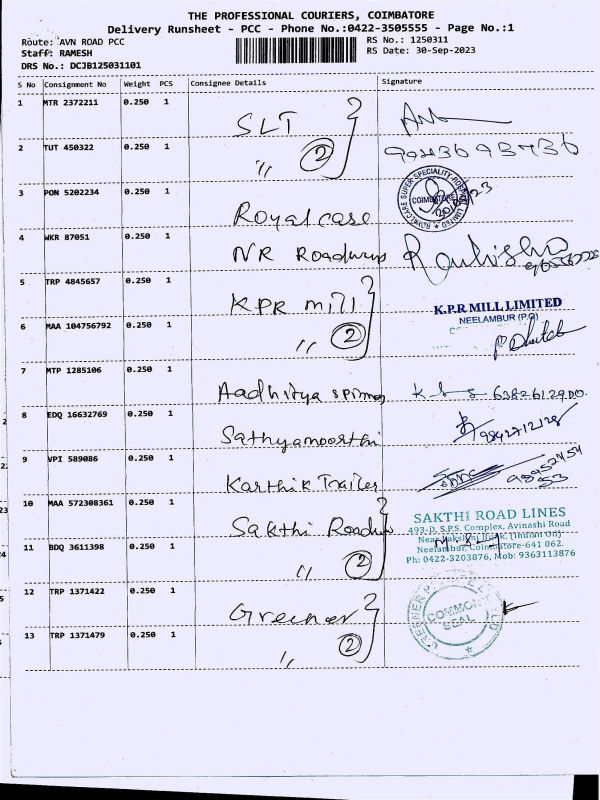 THE PROFESSIONAL COURIERS, COIMBATORE
Delivery Runsheet - PCC - Phone No.:0422-3505555 - Page No.:1
Route: AVN ROAD PCC
Staff: RAMESH
DRS No.: DCJB125031101
RS No.: 1250311
RS Date: 30-Sep-2023
S No Consignment No Weight PCS Consignee Details Signature
1 MTR 2372211 0.250 1 SLT
2 TUT 450322 0.250 1 ,, 2
3 PON 5202234 0.250 1 Royal case
COIMBATORE
4 WKR 87051 0.250 1 NR Roadways
5 TRP 4845657 0.250 1 KPR mill
K.P.R MILL LIMITED
NEELAMBUR (P.O)
6 MAA 104756792 0.250 1 ,, 2
7 MTP 1285106 0.250 1 Aadhitya
8 EDQ 16632769 0.250 1 Sathyamoorthi
9842712128
9 VPI 589086 0.250 1 Karthik Trailer
10 MAA 572308361 0.250 1 Sakthi
SAKTHI ROAD LINES
493-D, S.P.S. Complex, Avinashi Road
Neelambur, Coimbatore-641 062.
Ph: 0422-3203876, Mob: 9363113876
11 BDQ 3611398 0.250 1 ,, 2
12 TRP 1371422 0.250 1 Greener
COMMON
SEAL
13 TRP 1371479 0.250 1 ,, 2